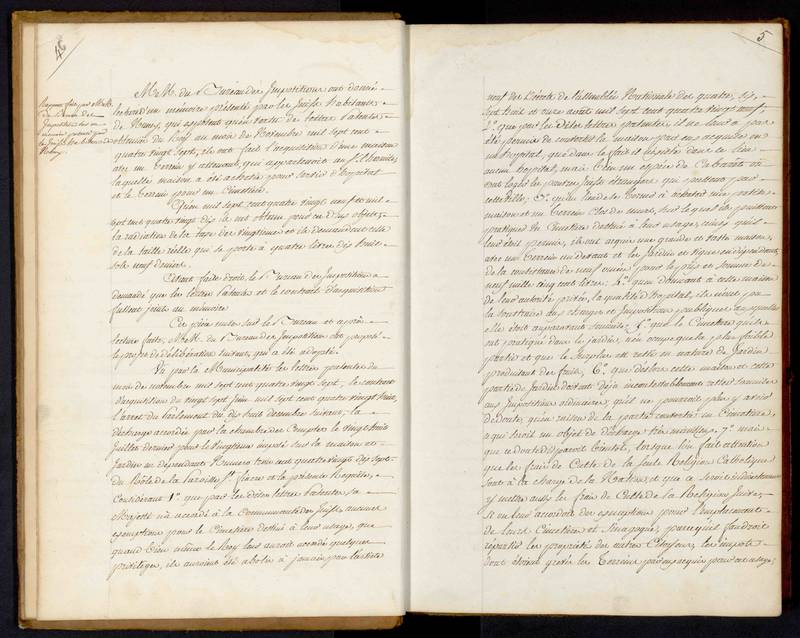 46
Rapport fait par MM.
du Bureau des
Impositions sur un
mémoire présenté par
les Juifs habitants de
Nancy.
M.M. du Bureau des Impositions ont donné
lecture d'un mémoire présenté par les Juifs habitants
de Nancy, qui exposent qu'en vertu de lettres Patentes
obtenues du Roy au mois de Novembre mil sept cent
quatre vingt sept, ils ont fait l'acquisition d'une maison
avec un terrein y attenant, qui appartenoit au S.
laquelle maison a été achetée pour servir d'hopital
et le terrein pour un Cimetière.
Qu'en mil sept cent quatre vingt neuf et mil
sept cent quatre vingt dix ils ont obtenu pour ces deux objets,
la radiation de la taxe des vingtiemes et ils demandent celle
de la taille réelle qui se porte à quatre livres dix huit
sols neuf deniers.
Et avant faire droit, le Bureau des Impositions a
demandé que les lettres Patentes et le contrat d'acquisition
fussent joints au mémoire
Ces pièces mises sur le Bureau et après
lecture faite, M.M. du Bureau des Impositions ont proposé
le projet de délibération suivant, qui a été adopté.
Vu par la Municipalité les lettres patentes du
mois de novembre mil sept cent quatre vingt sept, le contrat
d'acquisition du vingt sept Juin mil sept cent quatre vingt huit,
l'arrêt du Parlement du dix huit decembre suivant; la
décharge accordée par la chambre des Comptes le vingt huit
Juillet dernier pour le vingtieme imposé sur la maison et
Jardin en dépendants Numero trois cent quatre vingt dix sept
du Rôle de la paroisse S.t et la présente Requête,
Considérant 1.° que par les dites lettres Patentes, sa
Majesté n'a accordé à la Communauté des Juifs, aucune
exemption pour le Cimetière destiné à leur usage, que
quand bien même le Roy leur auroit accordé quelques
privilèges, ils auroient été abolis à jamais par l'article
5
neuf des Décrets de l'assemblée Nationale des quatre, six,
sept, huit et onze août mil sept cent quatre vingt neuf;
2.° que par les dites lettres patentes il ne leur a pas
été permis de convertir la maison par eux acquise en
un hopital, que dans le fait il n'existe dans ce lieu
aucun hopital, mais bien un espèce de Cabaret où
sont logés les pauvres Juifs étrangers qui passent par
cette ville; 3.° qu'au lieu de se borner à acheter une petite
maison et un terrein clos de murs, sur lequel ils pussent
pratiquer un Cimetière destiné à leur usage, ainsi qu'il
leur étoit permis, ils ont acquis une grande et vaste maison,
avec un terrein au devant et les Jardins et vignes en dépendants,
de la contenance de neuf pour le prix et somme de
neuf mille cinq cent livres; 4.° qu'en donnant à cette maison
de leur autorité privée, la qualité d'hopital, ils n'ont pu
la soustraire aux charges et Impositions publiques auxquelles
elle étoit auparavant soumise; 5.° que le Cimetière qu'ils
ont pratiqué dans le Jardin, n'en occupe que la plus faible
partie et que le surplus est resté en nature de Jardin
produisant des fruits, 6.° que dès lors cette maison et cette
partie de Jardin doivent déjà incontestablement rester soumises
aux Impositions ordinaires, qu'il ne pourroit pas y avoir
de doute, qu'en raison de la partie convertie en Cimetière,
ce qui seroit un objet de décharge très minutieux, 7.° mais
que ce doute disparoit bientôt, lorsque l'on fait attention
que les frais de Culte de la seule Religion Catholique
sont à la charge de la Nation, et que ce seroit indirectement
y mettre aussi les frais de Culte de la Religion Juive,
si on leur accordoit des exemptions pour l'emplacement
de leurs Cimetière et Sinagogue, parcequ'il faudroit
répartir sur les propriétés des autres Citoyens, les impots
dont étoient grevés les terreins par eux acquis pour cet usage;